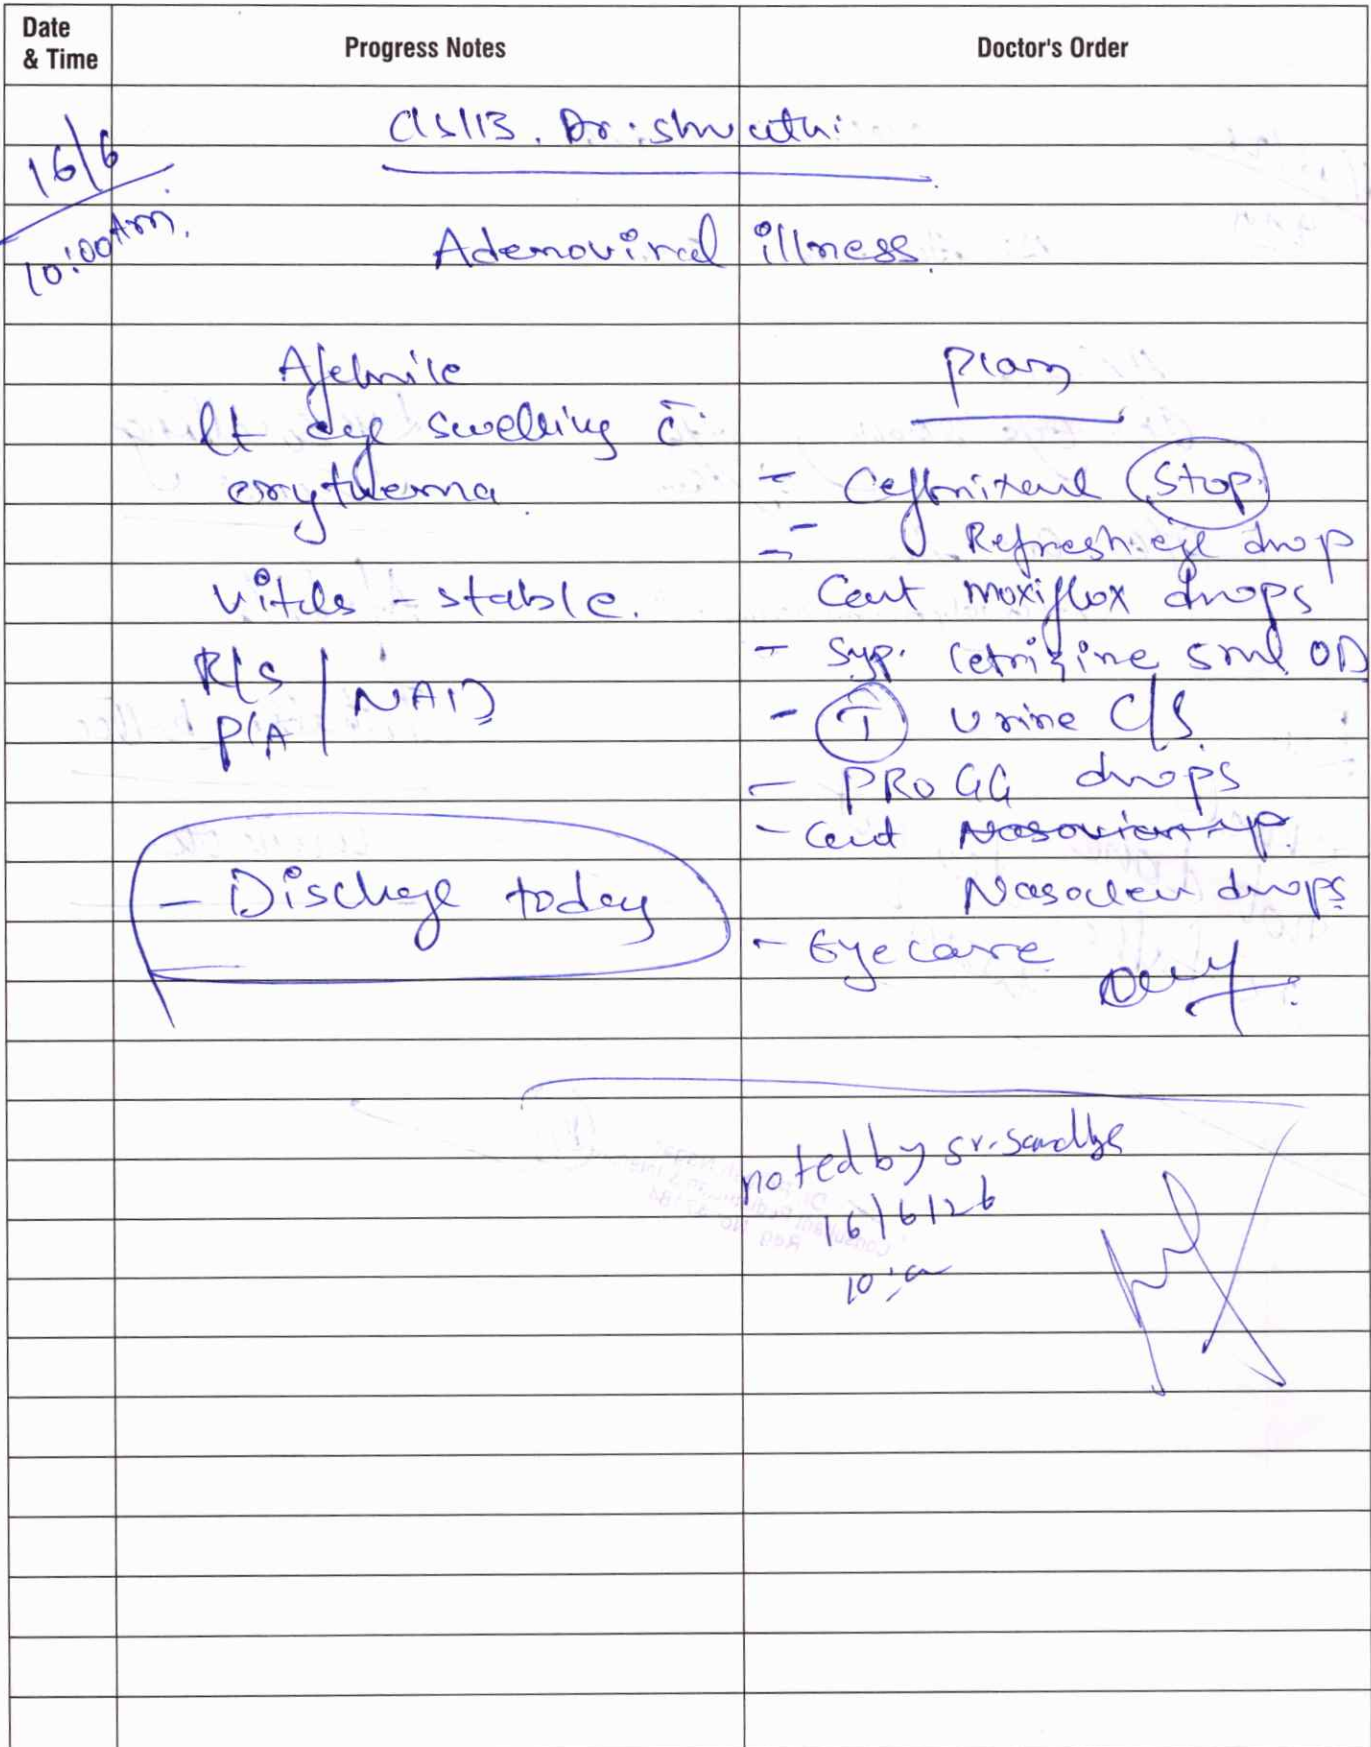 Date & Time
Progress Notes
Doctor's Order
16/6
10:00Am.
C/S/B. Dr. Shwathi
Adenoviral illness.
Afebrile
lt eye swelling c̄
erythema.
vitals - stable.
R/S
P/A
NAD
- Discharge today
Plan
- Stop.
- Refresh eye drop
Cont moxiflox drops
- Syp. Cetrizine 5ml OD
- T Urine C/S.
- PRO GG drops
- Cont
Nasoclear drops
- Eye care
noted by sr. Sandhya
16/6/26
10: